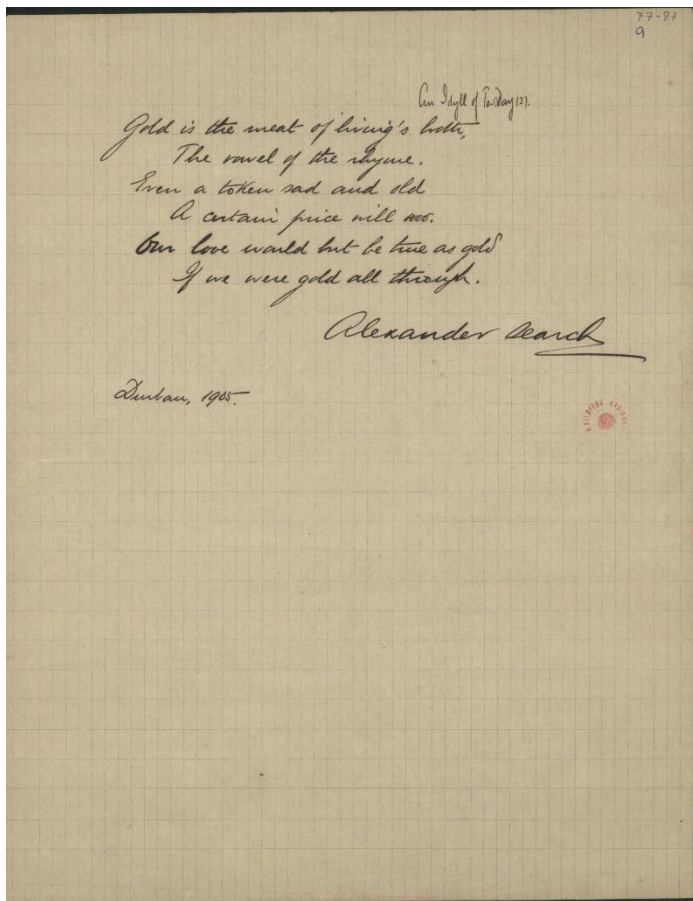 77-87
9
An Idyll of To-Day (2).
Gold is the meat of living's broth,
The vowel of the rhyme.
Even a token sad and old
A certain price will woo.
Our love would but be true as gold
If we were gold all through.
Alexander Search
Durban, 1905.